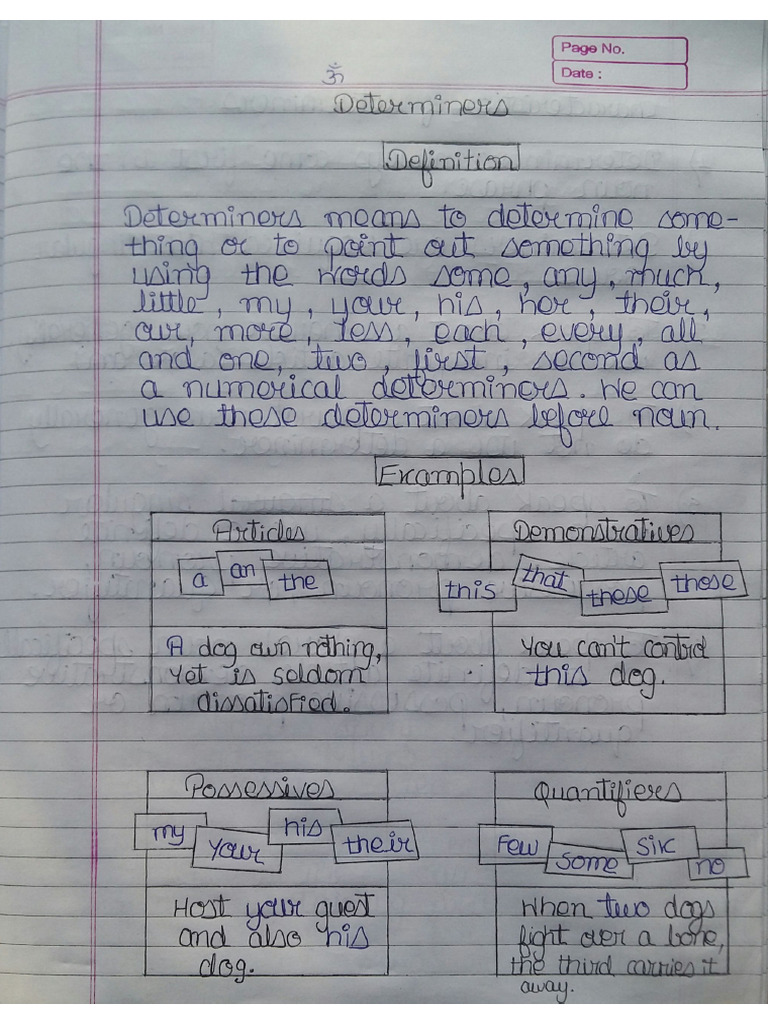 Page No.
Date :
ॐ
Determiners
Definition
Determiners means to determine some-
thing or to point out something by
using the words some, any, much,
little, my, your, his, her, their,
our, more, less, each, every, all
and one, two, first, second as
a numerical determiners. We can
use these determiners before noun.
Examples
Articles
a an the
A dog own nothing,
yet is seldom
dissatisfied.
Demonstratives
this that these those
You can't control
this dog.
Possessives
my your his their
Host your guest
and also his
dog.
Quantifiers
Few some six no
When two dogs
fight over a bone,
the third carries it
away.